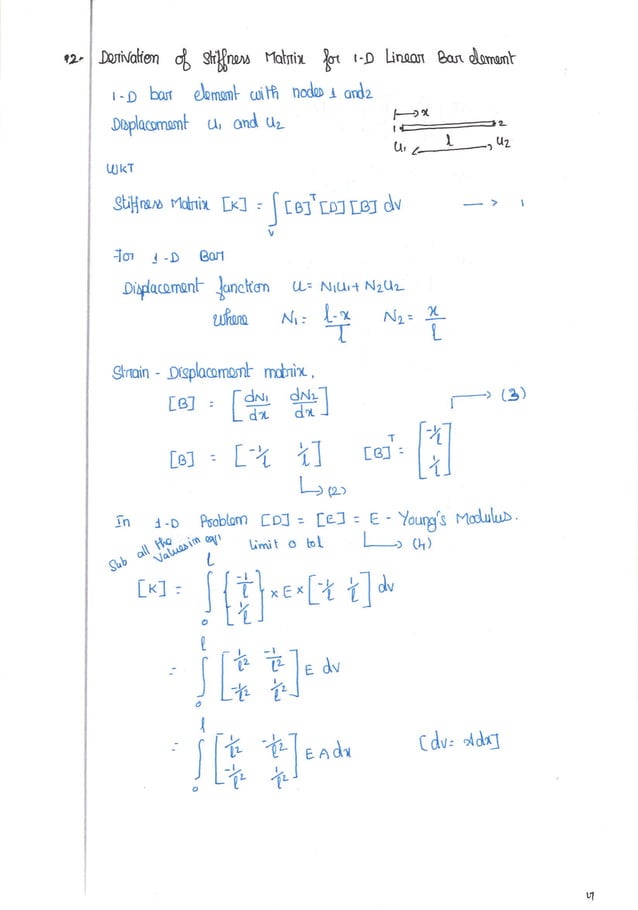 12. Derivation of Stiffness Matrix for 1-D Linear Bar element
1-D bar element with nodes 1 and 2
Displacement u₁ and u₂
x
1 2
u₁ l u₂
WKT
Stiffness Matrix [K] = ∫ᵥ [B]ᵀ [D] [B] dv → 1
For 1-D Bar
Displacement function u = N₁u₁ + N₂u₂
where N₁ = (l-x)/l N₂ = x/l
Strain - Displacement matrix,
[B] = [dN₁/dx dN₂/dx] → (3)
[B] = [-1/l 1/l] [B]ᵀ = [-1/l; 1/l]
→ (2)
In 1-D Problem [D] = [E] = E - Young's Modulus.
Sub all the values in eq 1 limit 0 to l → (4)
[K] = ∫₀ˡ {-1/l; 1/l} × E × [-1/l 1/l] dv
= ∫₀ˡ [1/l² -1/l²; -1/l² 1/l²] E dv
= ∫₀ˡ [1/l² -1/l²; -1/l² 1/l²] E A dx [dv = Adx]